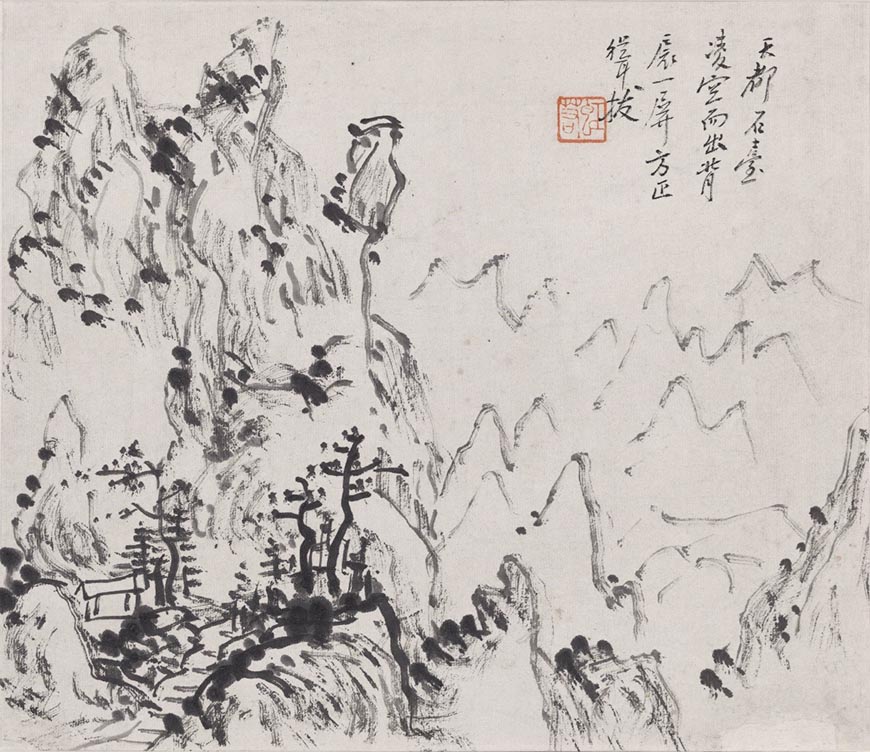 天都石臺
凌空而出背
扆一屏方正
聳拔
虹訒